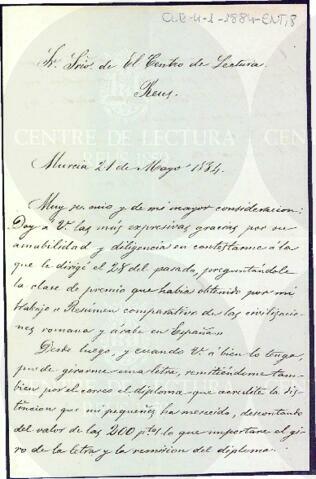 C.R-4-1-1884-ENT,8
Sr. Srio. de El Centro de Lectura.
Reus.
CENTRE DE LECTURA
Murcia 21 de Mayo 1884.
Muy sr. mio y de mi mayor consideracion:
Doy a V. las más expresivas gracias por su
amabilidad y diligencia en contestarme á la
que le dirigí el 28 del pasado, preguntándole
la clase de premio que habia obtenido por mi
trabajo "Resúmen comparativo de las civilizacio-
nes romana y árabe en España"
Desde luego, y cuando V. á bien lo tenga,
puede girarme una letra, remitiéndome tam-
bien por el correo el diploma que acredite la dis-
tincion que mi pequeñez ha merecido, descontando
del valor de las 200 ptas lo que importare el gi-
ro de la letra y la remision del diploma.